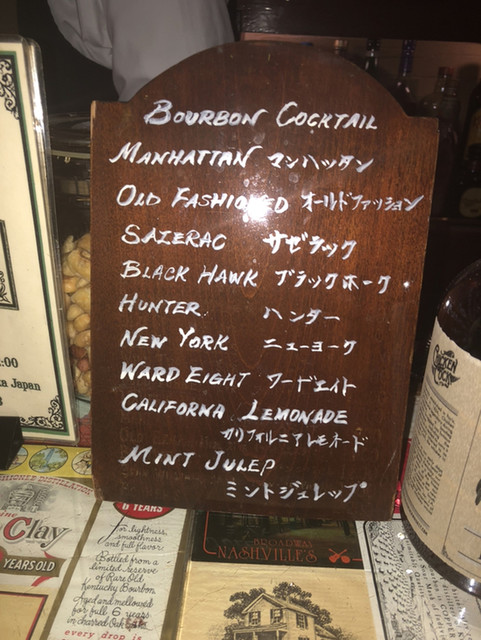 BOURBON COCKTAIL
MANHATTAN マンハッタン
OLD FASHIONED オールドファッション
SAZERAC サゼラック
BLACK HAWK ブラックホーク
HUNTER ハンター
NEW YORK ニューヨーク
WARD EIGHT ワードエイト
CALIFORNA LEMONADE
カリフォルニアレモネード
MINT JULEP
ミントジュレップ
:00
Japan
Clay
YEARS OLD
6 YEARS
for lightness,
smoothness
and full flavor:
Bottled from a
limited reserve
of Rare Old
Kentucky Bourbon
Aged and mellowed
for full 6 years
in charred Oak
every drop is
BROADWAY
NASHVILLE'S
CHICKEN
COCK